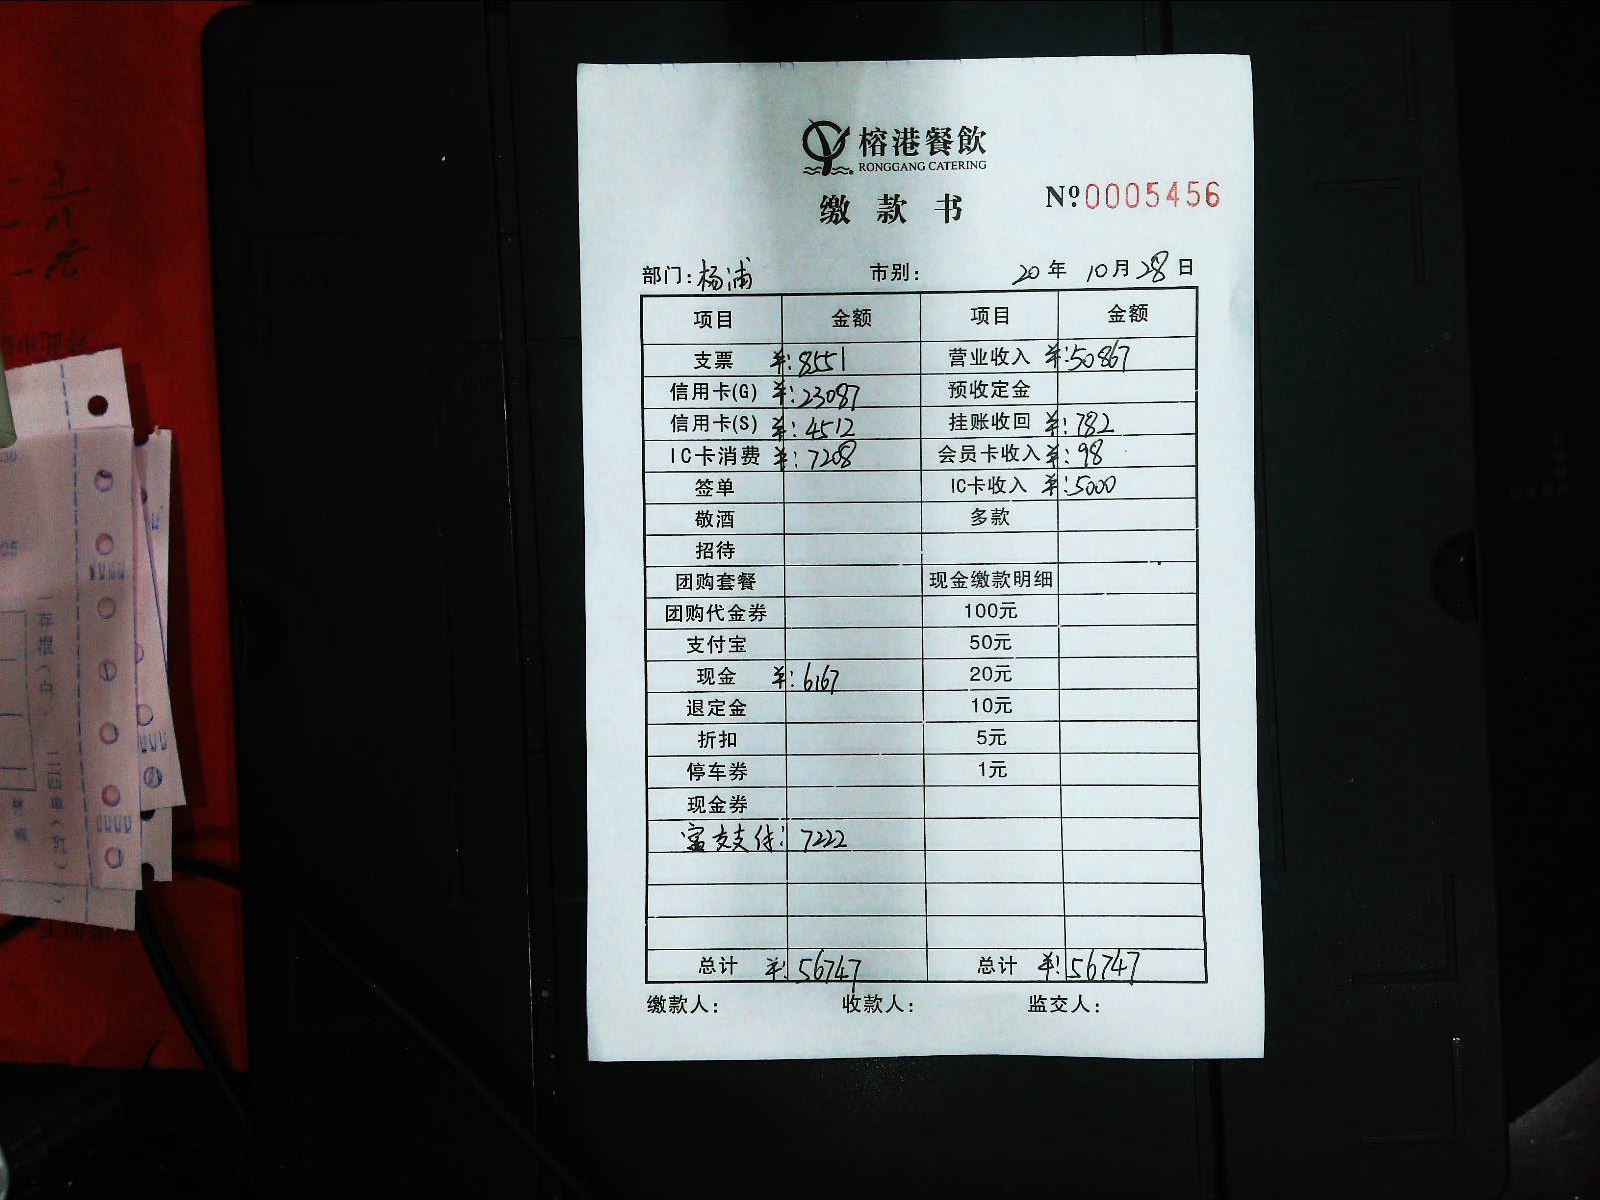 榕港餐飲
RONGGANG CATERING
缴款书 Nº 0005456
部门: 杨浦 市别: 20年 10月 28日
项目 金额 项目 金额
支票 ¥: 8551 营业收入 ¥: 50867
信用卡(G) ¥: 23087 预收定金
信用卡(S) ¥: 4512 挂账收回 ¥: 782
IC卡消费 ¥: 7208 会员卡收入 ¥: 98
签单 IC卡收入 ¥: 5000
敬酒 多款
招待
团购套餐 现金缴款明细
团购代金券 100元
支付宝 50元
现金 ¥: 6167 20元
退定金 10元
折扣 5元
停车券 1元
现金券
富友支付: 7222
总计 ¥: 56747 总计 ¥: 56747
缴款人: 收款人: 监交人: